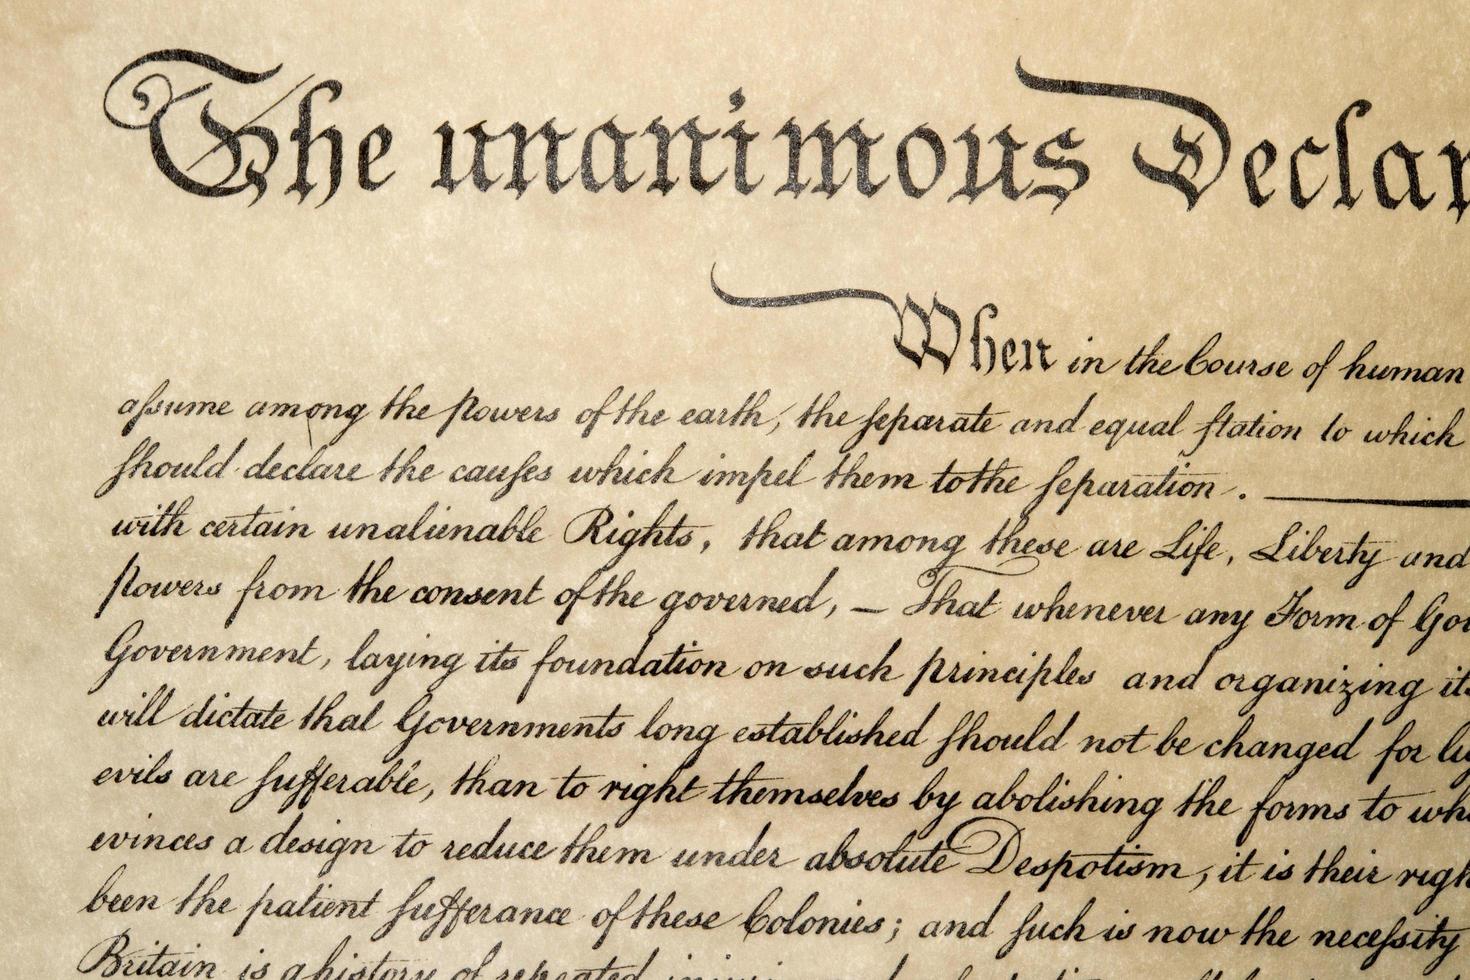 The unanimous Declar
When in the Course of human
aſsume among the powers of the earth, the ſeparate and equal ſtation to which
ſhould declare the cauſes which impel them to the ſeparation.
with certain unalienable Rights, that among these are Life, Liberty and
powers from the consent of the governed, — That whenever any Form of Gov
Government, laying its foundation on such principles and organizing its
will dictate that Governments long established ſhould not be changed for lig
evils are ſufferable, than to right themselves by abolishing the forms to whi
evinces a design to reduce them under absolute Despotism, it is their righ
been the patient ſufferance of these Colonies; and ſuch is now the neceſsity
Britain is a history of repeated